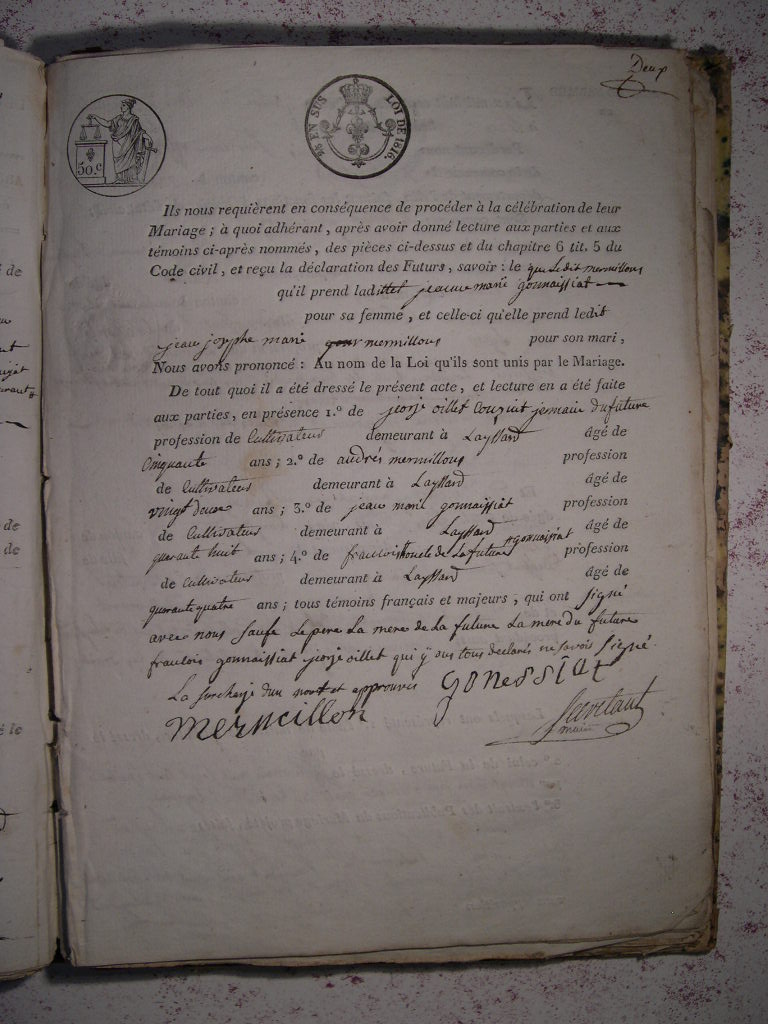 Deux
50.c
EN SUS LOI DE 1816
Ils nous requièrent en conséquence de procéder à la célébration de leur
Mariage ; à quoi adhérant, après avoir donné lecture aux parties et aux
témoins ci-après nommés, des pièces ci-dessus et du chapitre 6 tit. 5 du
Code civil, et reçu la déclaration des Futurs, savoir : le que Ledit mermillons
qu'il prend ladittet jeanne marie gonnaissiat
pour sa femme, et celle-ci qu'elle prend ledit
jean josephe marie mermillons pour son mari,
Nous avons prononcé : Au nom de la Loi qu'ils sont unis par le Mariage.
De tout quoi il a été dressé le présent acte, et lecture en a été faite
aux parties, en présence 1.º de jorje oillet Couzint jermain du future
profession de Cultivateur demeurant à Layssard âgé de
Cinquante ans ; 2.º de andrés mermillons profession
de Cultivateur demeurant à Layssard âgé de
vingt deux ans ; 3.º de jean marie gonnaissiat profession
de Cultivateur demeurant à Layssard âgé de
quarante huit ans ; 4.º de francois oncle de La future gonnaissiat profession
de Cultivateur demeurant à Layssard âgé de
quarante quatre ans ; tous témoins français et majeurs, qui ont signé
avec nous Saufe Le pere La mere de La future La mere du future
francois gonnaissiat jorje oillet qui y ons tous declarés ne savoir Signé.
La surcharje dun mot et approuvés gonessiat
mermillon Secretant
maire